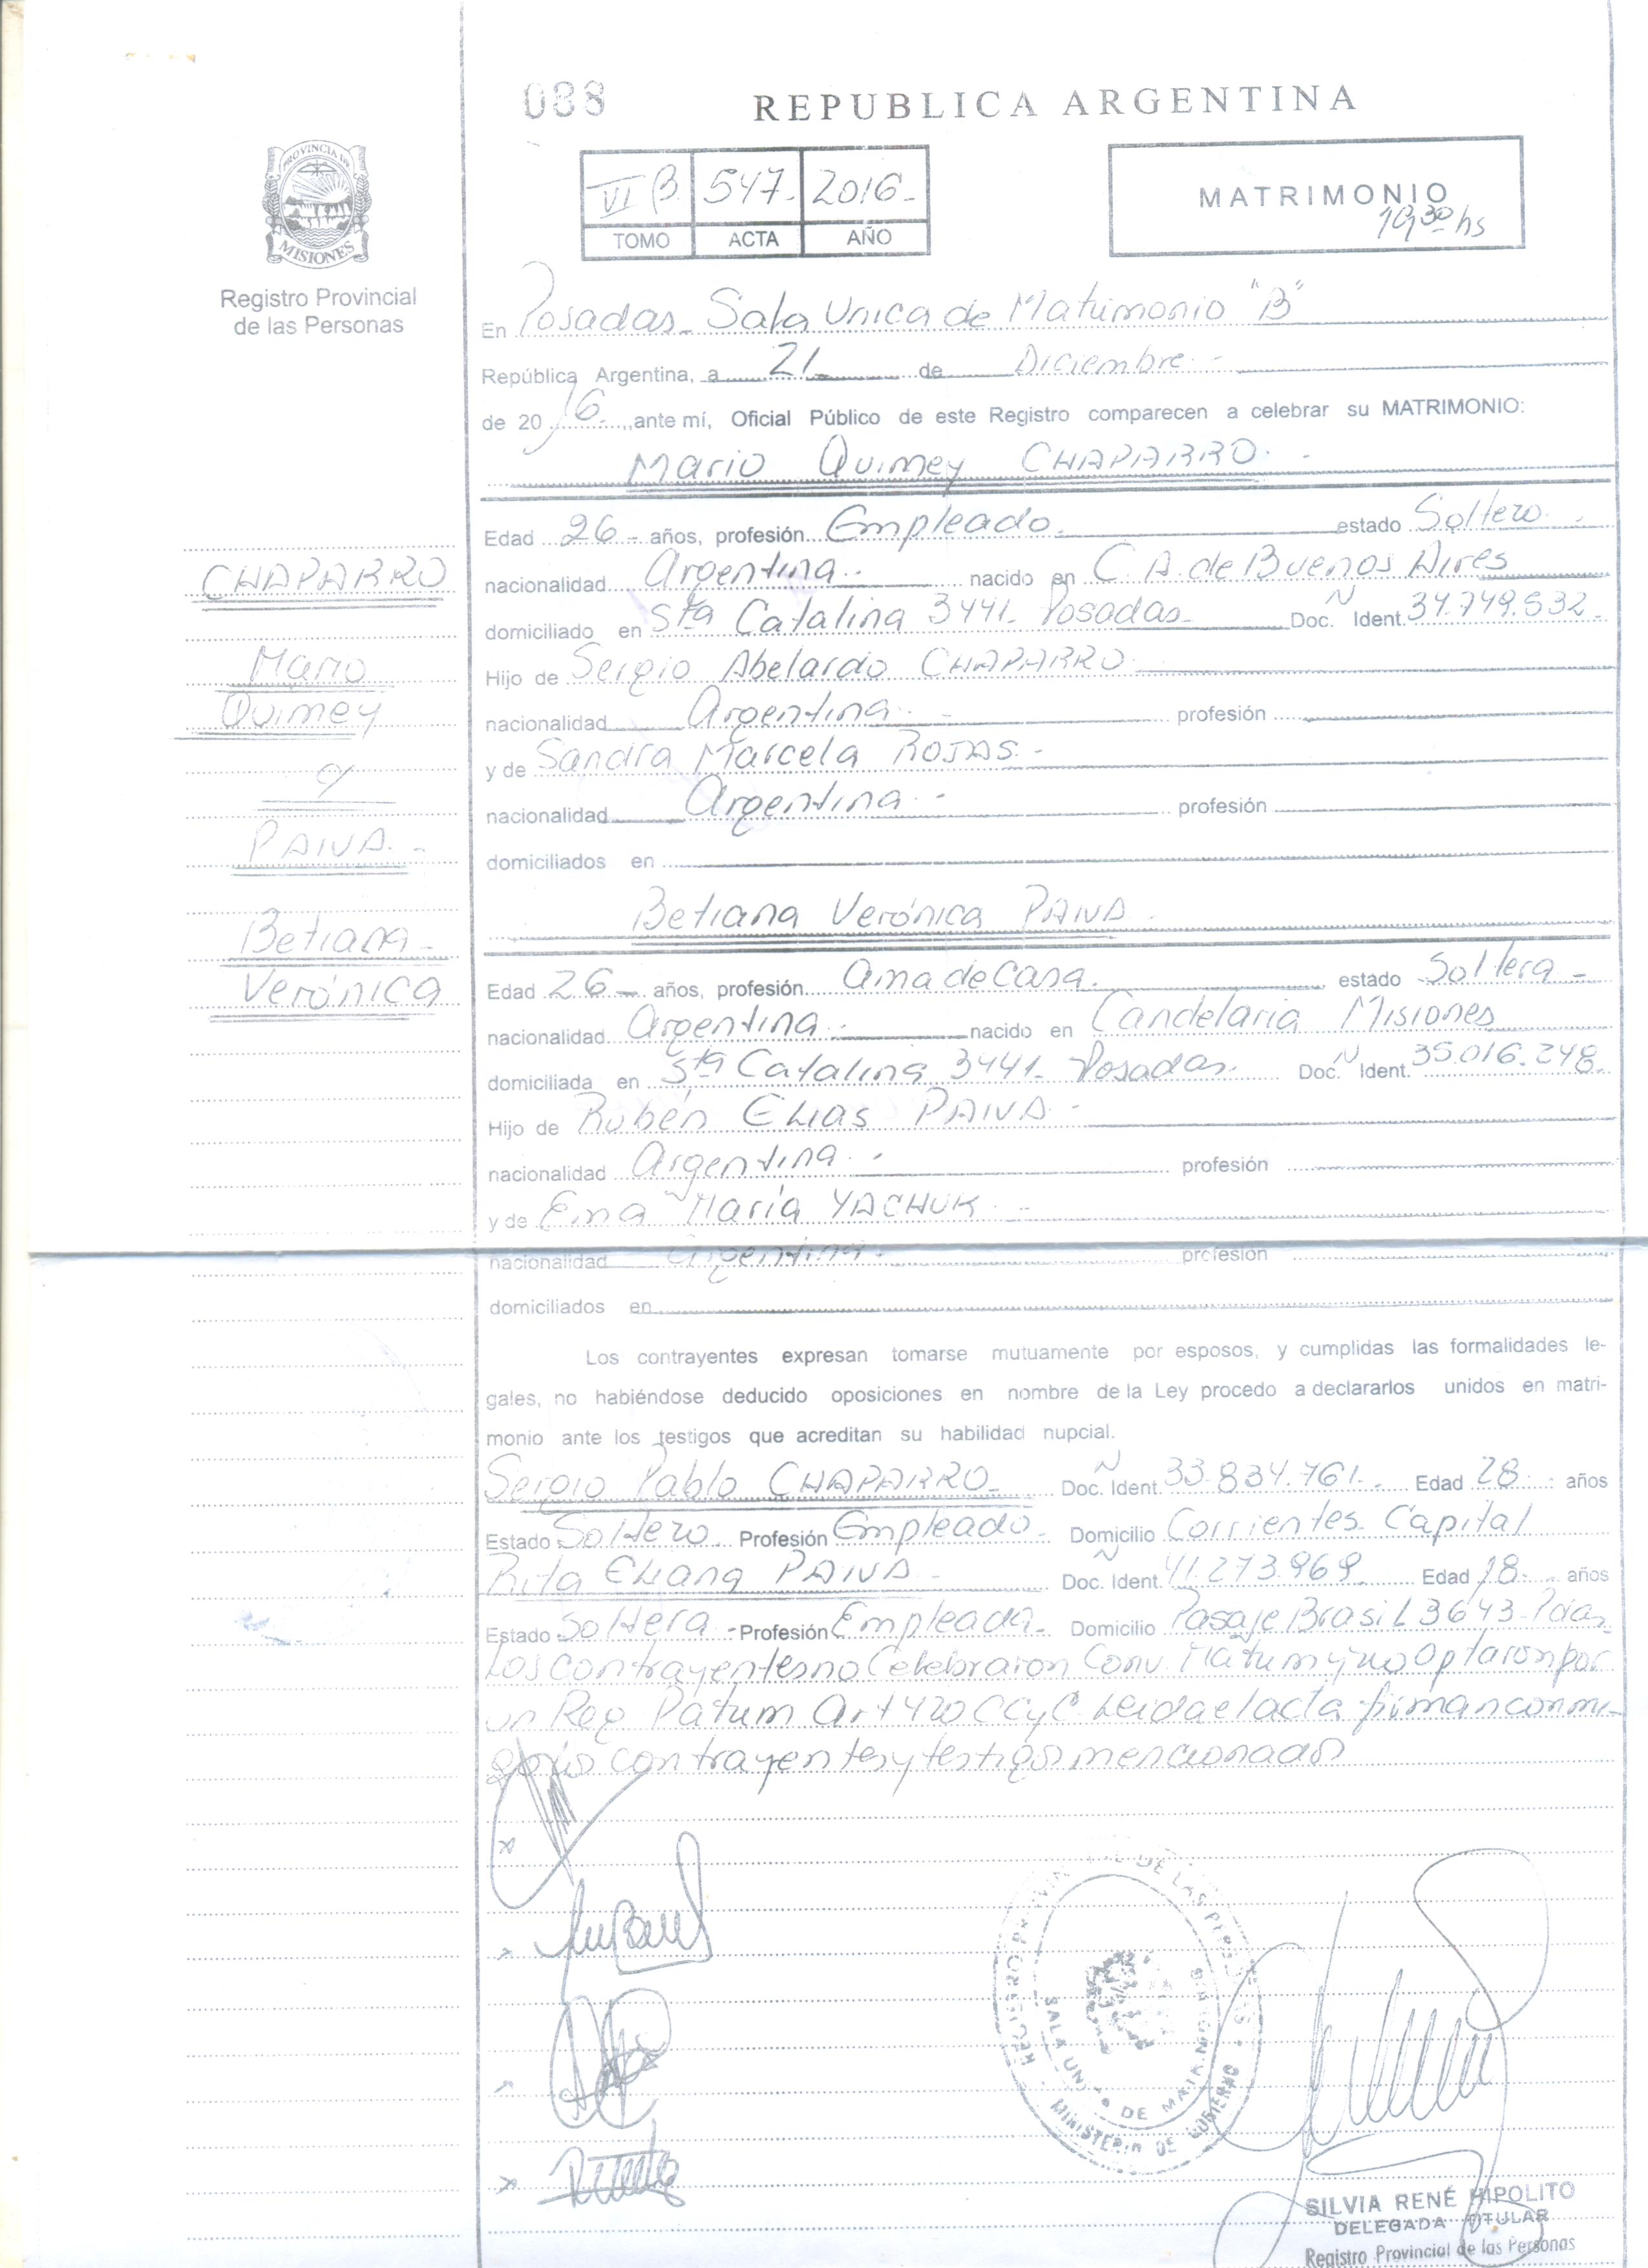 088
REPUBLICA ARGENTINA
PROVINCIA DE
MISIONES
Registro Provincial
de las Personas
VI B. 547- 2016-
TOMO ACTA AÑO
MATRIMONIO
10,30 hs
En Posadas Sala Unica de Matrimonio "B"
República Argentina, a 21 de Diciembre -
de 2016.-, ante mí, Oficial Público de este Registro comparecen a celebrar su MATRIMONIO:
Mario Quimey CHAPARRO. -
Edad 26- años, profesión Empleado. estado Soltero.
nacionalidad Argentina.- nacido en C. A. de Buenos Aires
domiciliado en Sta Catalina 3441- Posadas- Doc. N Ident. 34.749.532.-
Hijo de Sergio Abelardo CHAPARRO.
nacionalidad Argentina.- profesión
y de Sandra Marcela ROJAS.-
nacionalidad Argentina.- profesión
domiciliados en
CHAPARRO
Mario
Quimey
c/
PAIVA.-
Betiana-
Verónica
Betiana Verónica PAIVA.
Edad 26- años, profesión Ama de Casa. estado Soltera-
nacionalidad Argentina.- nacido en Candelaria Misiones
domiciliada en Sta Catalina 3441- Posadas. Doc. N Ident. 35.016.248.
Hijo de Rubén Elias PAIVA.-
nacionalidad Argentina.- profesión
y de Ema María YACHUK.-
nacionalidad Argentina.- profesión
domiciliados en
Los contrayentes expresan tomarse mutuamente por esposos, y cumplidas las formalidades le-
gales, no habiéndose deducido oposiciones en nombre de la Ley procedo a declararlos unidos en matri-
monio ante los testigos que acreditan su habilidad nupcial.
Sergio Pablo CHAPARRO- Doc. N Ident. 33.834.761.- Edad 28 años
Estado Soltero. Profesión Empleado- Domicilio Corrientes. Capital
Rita Eliana PAIVA- Doc. N Ident. 41.273.969. Edad 18 años
Estado Soltera- Profesión Empleada- Domicilio Pasaje Brasil 3643-Pdas,
Los contrayentes no Celebraron Conv. Matrim y no optaron por
un Reg Patrim Art 420 CCyC Leida el acta firman conmi-
go los contrayentes y testigos mencionados
REGISTRO PROVINCIAL DE LAS PERSONAS
SALA UNICA DE MATRIMONIO
MINISTERIO DE GOBIERNO
SILVIA RENÉ HIPOLITO
DELEGADA TITULAR
Registro Provincial de las Personas